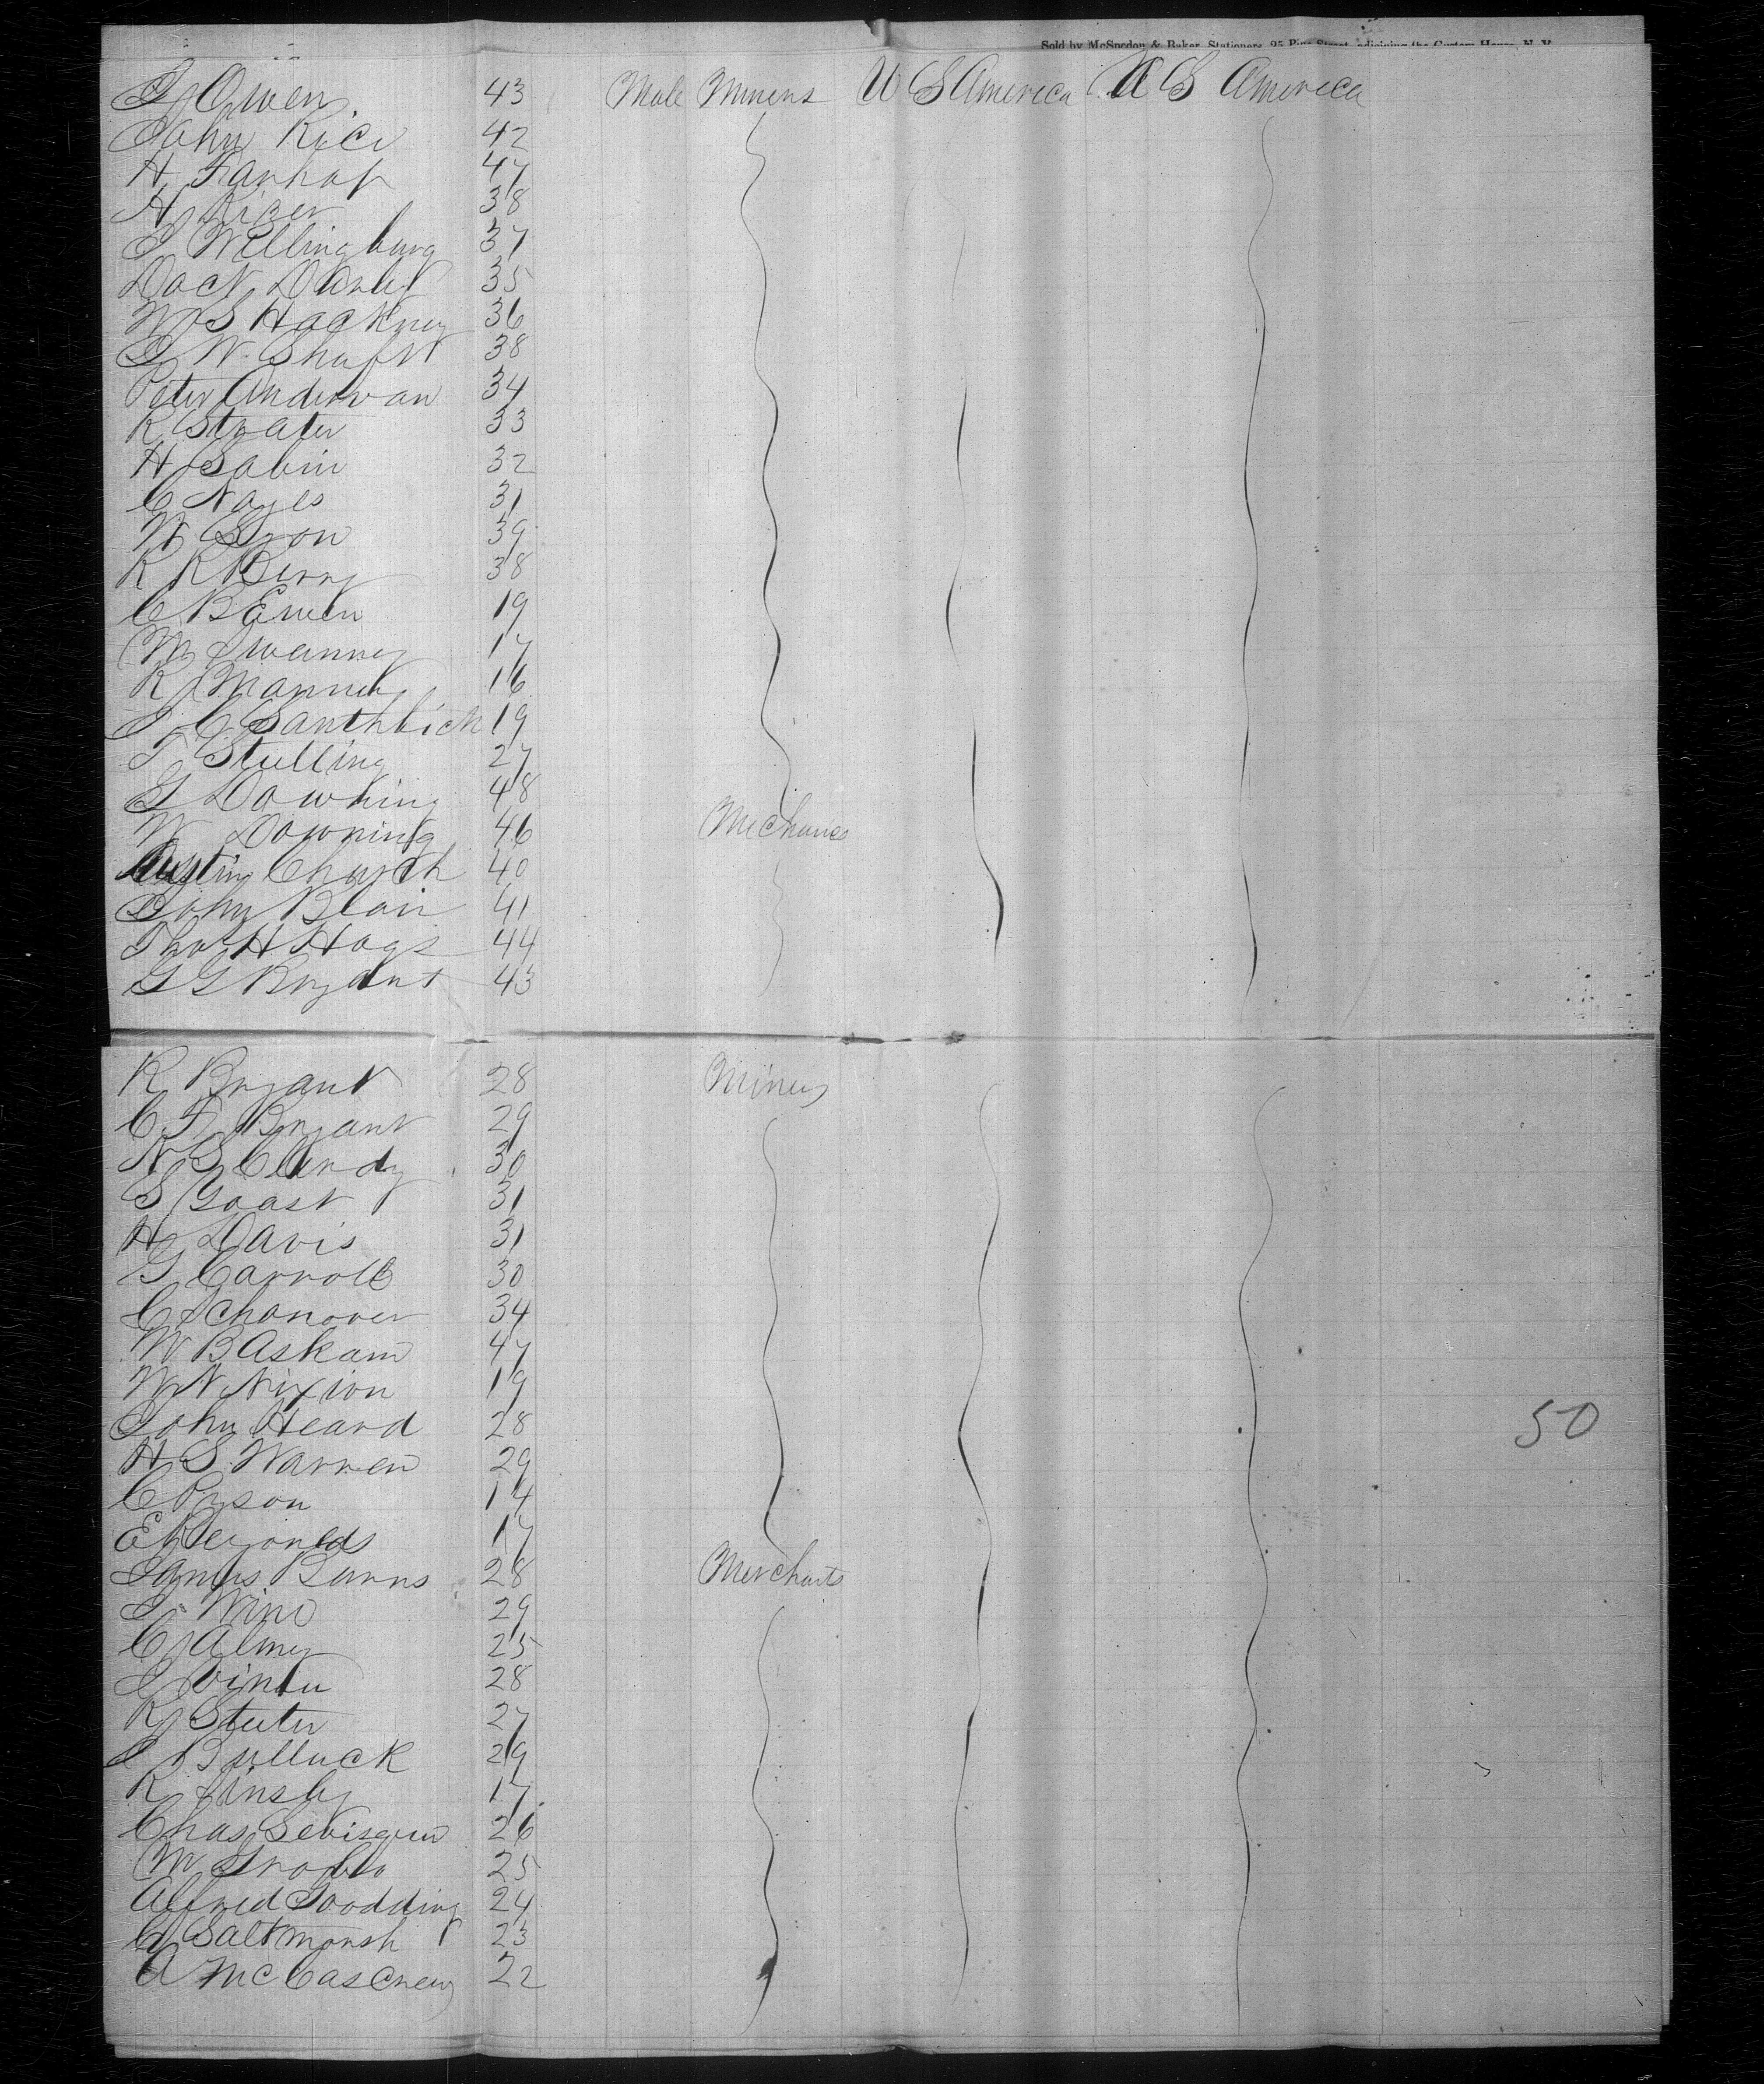 Sold by McSpedon & Baker, Stationers, 25 Pine Street, adjoining the Custom House, N. Y.
J Owen 43 Male Miners U S America U S America
John Rice 42
H Fanhap 47
A Kizer 38
J Willingburg 37
Doct Darby 35
W S Hackney 36
J W Shaft 38
Peter Anderwan 34
R Strater 33
H Sabin 32
C Noyes 31
W Gron 39
R R Berry 38
C B Ewen 19
M Swanney 17
R Manney 16
J C Santhbick 19
T Stelling 27
G Downing 48
W Downing 46 Mechanes
Austin Church 40
John Blair 41
Thos H Hags 44
G G Bryant 43
R Bryant 28 Miners
C F Bryant 29
N S Clandy 30
S Yoast 31
H Davis 31
G Carroll 30
C Schonover 34
W B Askam 47
W N Nixion 19
John Heard 28
50
H S Warren 29
C Pyson 14
E Reyonlds 17
James Burns 28 Merchants
J Wino 29
C Almy 25
J 28
R Steeter 27
J Bulluck 29
R Linsly 17
Chas 26
M 25
Alfred Goodding 24
C Saltmarsh 23
A McCascrewy 22